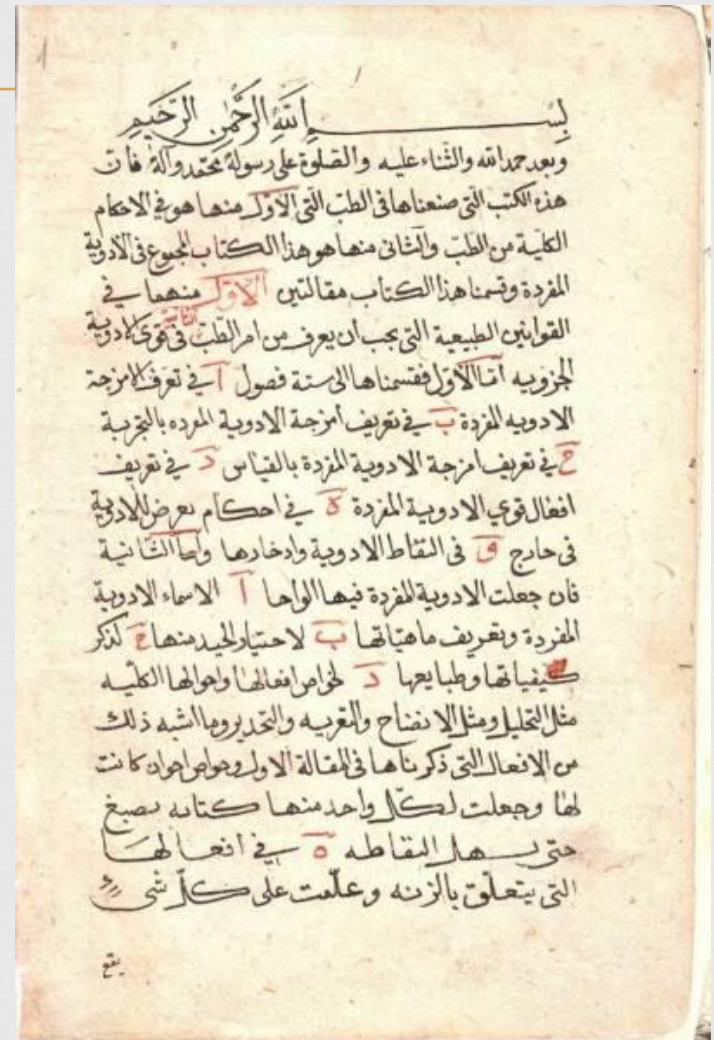 بسم الله الرحمن الرحيم
وبعد حمد الله والثناء عليه والصلوة على رسوله محمد وآله فان
هذه الكتب التى صنعناها فى الطب التى الاول منها هو في الاحكام
الكلية من الطب والثانى منها هو هذا الكتاب المجموع فى الادوية
المفردة وقسمنا هذا الكتاب مقالتين الاول منهما في
القوانين الطبيعية التى يجب ان يعرف من امر الطب والثانية فى قوى الادوية
الجزويه اما الاول فقسمناها الى ستة فصول ا في تعرف امزجة
الادويه المفردة ب في تعريف امزجة الادوية المفرده بالتجربة
ج في تعريف امزجة الادوية المفردة بالقياس د في تعريف
افعال قوي الادوية المفردة ه في احكام يعرض للادوية
فى خارج و فى التقاط الادوية وادخارها واما الثانية
فان جعلت الادوية المفردة فيها الواحا ا الاسماء الادوية
المفردة وتعريف ماهياتها ب لاختيار الجيد منها ج لذكر
كيفياتها وطبايعها د لخواص افعالها واحوالها الكليه
مثل التحليل ومثل الانضاح والتغريه والتخدير وما اشبه ذلك
من الافعال التى ذكرناها فى المقالة الاول وخواص اخوان كانت
لها وجعلت لكل واحد منها كتابه بصبغ
حتى يسهل التقاطه ه في افعالها
التى يتعلق بالزنه وعلمت على كل شى
يقع